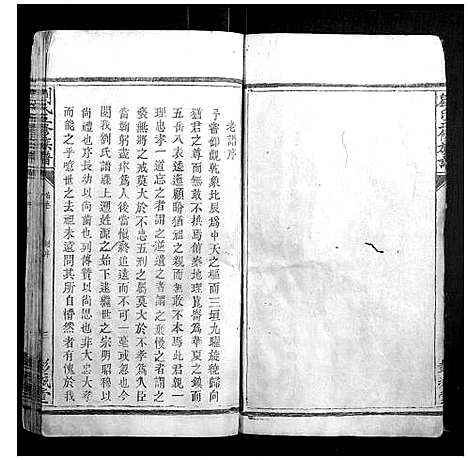 老譜序
予嘗仰觀乾象北辰為中天之樞而三垣九曜旋繞歸向
猶君之尊而無敢不拱焉俯察地理崑崙為華夏之鎮而
五岳八表逶迤顧盼猶祖之親而無敢不本焉此君親一
理忠孝一道忘之者謂之逆遺之者謂之乖慢之者謂之
褻無將之戒莫大於不忠五刑之屬莫大於不孝為人臣
當鞠躬盡瘁為人後當慎終追遠而不可一毫或忽也今
閱我劉氏譜牒上遡姓源下逮繼世之宗明昭穆以
尚禮也序長幼以尚齒也列傳贊以尚思也非大忠大孝
而能之乎噫世之去祖未遠問其所自懵然者有愧於我
劉氏
族譜
彭城堂